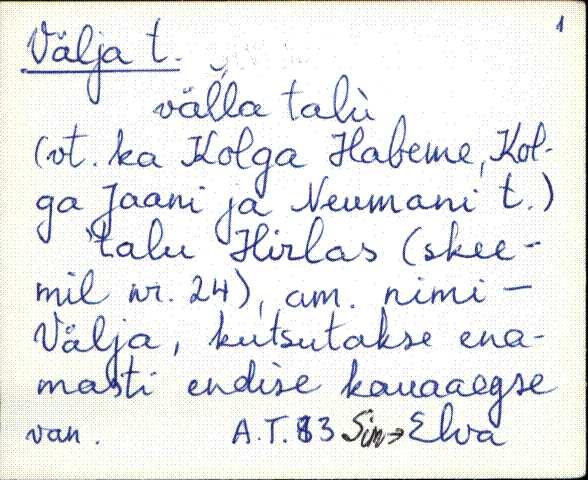 1
Välja t.
välla talù
(vt. ka Kolga Habeme, Kol-
ga Jaani ja Neumani t.)
talu Hirlas (skee-
mil nr. 24), am. nimi –
Välja, kutsutakse ena-
masti endise kauaaegse
van. A.T. 83 Sim → Elva